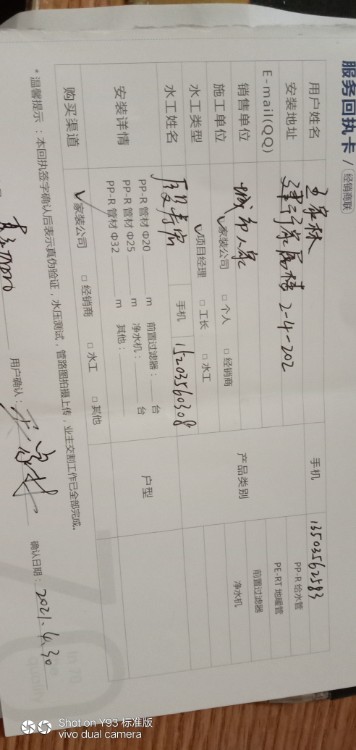 服务回执卡 / 经销商联
用户姓名 王家林 手机 13503562583
安装地址 建行家属楼 2-4-202
E-mail(QQ)
销售单位 城市人家 产品类别 PP-R 给水管
PE-RT 地暖管
前置过滤器
净水机
施工单位 ✓家装公司 □个人 □经销商
水工类型 ✓项目经理 □工长 □水工
水工姓名 手机 15203560308
安装详情 PP-R 管材 Φ20 m 前置过滤器: 台 户型
PP-R 管材 Φ25 m 净水机: 台
PP-R 管材 Φ32 m 其他:
购买渠道 ✓家装公司 □经销商 □水工 □其他
*温馨提示:本回执签字确认后表示真伪验证,水压测试,管路图拍摄上传,业主交割工作已全部完成。
用户确认: 王家林 确认日期: 2021.4.30
Shot on Y93 标准版
vivo dual camera